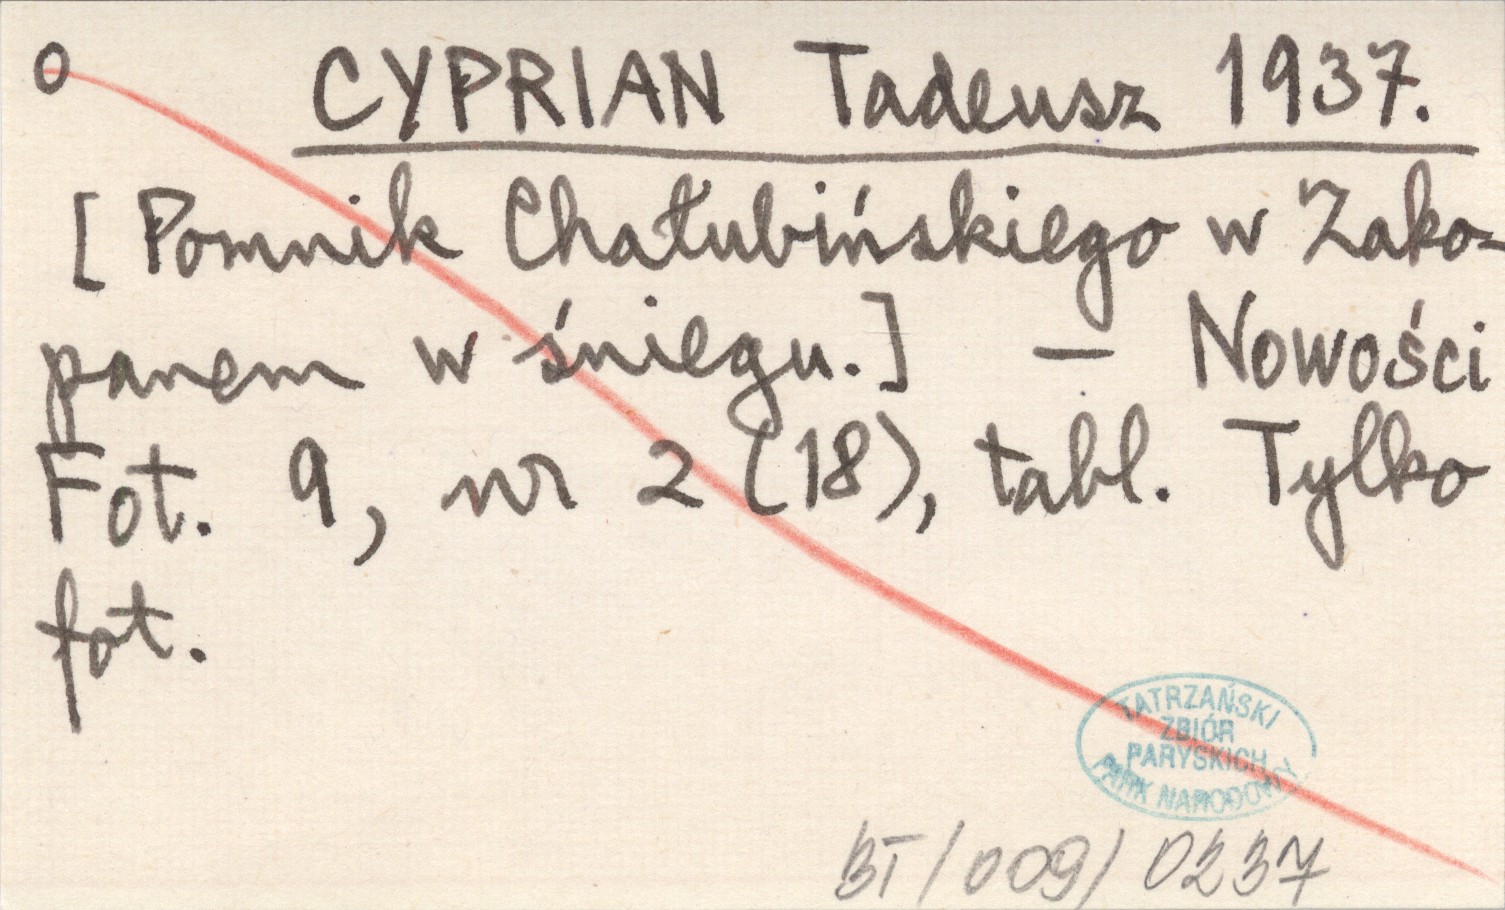 O CYPRIAN Tadeusz 1937.
[Pomnik Chałubińskiego w Zako-
panem w śniegu.] — Nowości
Fot. 9, nr 2 (18), tabl. Tylko
fot.
TATRZAŃSKI
ZBIÓR
PARYSKICH
PARK NARODOWY
BT/009/0237